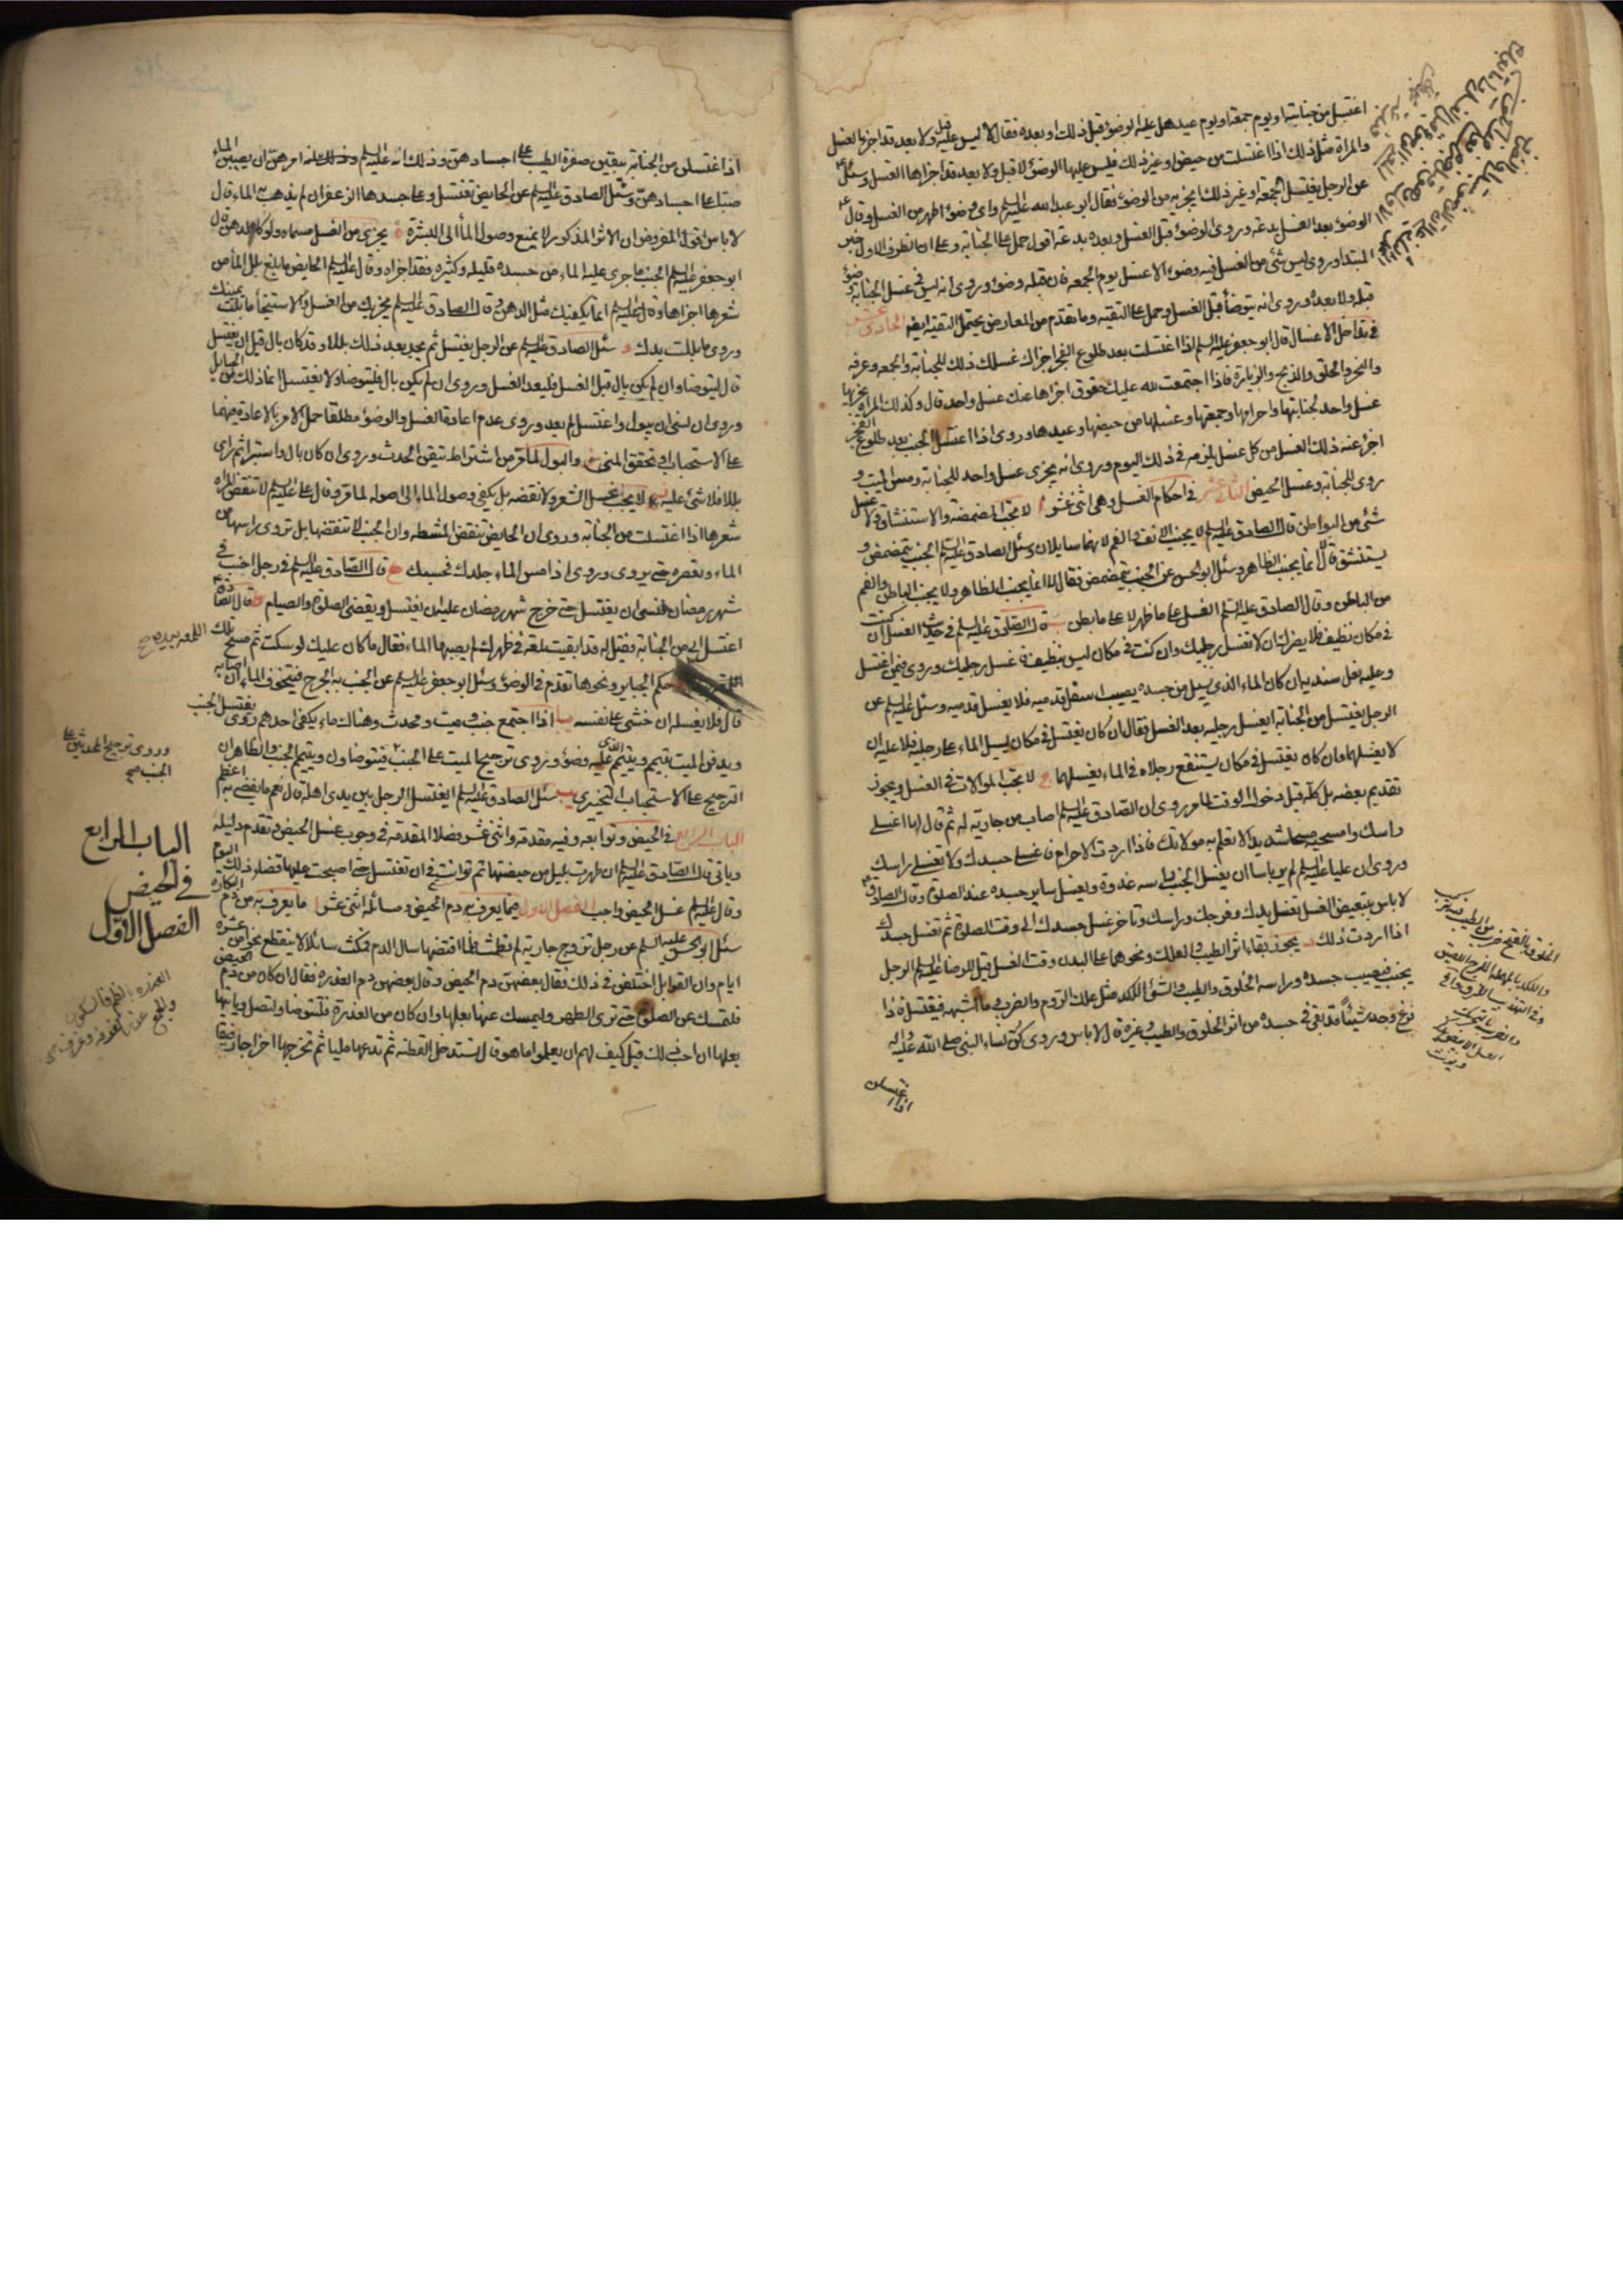 اغتسل من جنابته او يوم جمعة او يوم عيد هل عليه الوضوء قبل ذلك او بعده فقال لا ليس عليه قبل ولا بعد قد اجزاه الغسل
والمراة مثل ذلك اذا اغتسلت من حيض او غير ذلك فليس عليها الوضوء لا قبل ولا بعد قد اجزاها الغسل وسئل
عن الرجل يغتسل للجمعة او غير ذلك ايجزيه من الوضوء فقال ابو عبد الله عليه السلم واي وضوء اطهر من الغسل وقال ع
الوضوء بعد الغسل بدعة وروى الوضوء قبل الغسل وبعده بدعة اقول حمل على الجنابة وعلى ان الظرف الاول خبر
المبتدا وروى ليس شئ من الغسل فيه وضوء الا غسل يوم الجمعة فان قبله وضوء وروى انه ليس في غسل الجنابة وضوء
قبله ولا بعده وروى انه يتوضأ قبل الغسل وحمل على التقية وما تقدم من المعارض يحتمل التقية ايضا الحادى عشر
في تداخل الاغسال قال ابو جعفر عليه السلم اذا اغتسلت بعد طلوع الفجر اجزاك غسلك ذلك للجنابة والجمعة وعرفة
والنحر والحلق والذبح والزيارة فاذا اجتمعت لله عليك حقوق اجزاها عنك غسل واحد قال وكذلك المراة يجزيها
غسل واحد لجنابتها واحرامها وجمعتها وغسلها من حيضها وعيدها وروى اذا اغتسل الجنب بعد طلوع الفجر
اجزء عنه ذلك الغسل من كل غسل يلزمه في ذلك اليوم وروى انه يجزى غسل واحد للجنابة ومس الميت و
روى للجنابة وغسل الحيض الثانى عشر في احكام الغسل وهى اثنى عشر ا لا تجب المضمضة والاستنشاق ولا غسل
شئ من البواطن قال الصادق عليه السلم لا يجنب الانف والفم لانهما سايلان وسئل الصادق عليه السلم الجنب يتمضمض و
يستنشق قال لا انما يجنب الظاهر وسئل ابو الحسن عن الجنب يتمضمض فقال لا انما يجنب الظاهر ولا يجنب الباطن والفم
من الباطن وقال الصادق عليه السلم الغسل على ما ظهر لا على ما بطن ب قال الصادق عليه السلم في حديث الغسل ان كنت
في مكان نظيف فلا يضرك ان لا تغسل رجليك وان كنت في مكان ليس بنظيف فاغسل رجليك وروى فيمن اغتسل
وعليه نعل سندية ان كان الماء الذى يسيل من جسده يصيب اسفل قدميه فلا يغسل قدميه وسئل عليه السلم عن
الرجل يغتسل من الجنابة ايغسل رجليه بعد الغسل فقال ان كان يغتسل في مكان يسيل الماء على رجليه فلا عليه ان
لا يغسلهما وان كان يغتسل في مكان يستنقع رجلاه في الماء يغسلهما ج لا تجب الموالات في الغسل ويجوز
تقديم بعضه بل كله قبل دخول الوقت لما مر وروى ان الصادق عليه السلم اصاب من جارية له ثم قال لها اغسلى
راسك وامسحيه مسحا شديدا لا تعلم به مولاتك فاذا اردت الاحرام فاغسلى جسدك ولا تغسلى راسك
وروى ان عليا عليه السلم لم ير باسا ان يغسل الجنب راسه غدوة ويغسل ساير جسده عند الصلوة وقال الصادق ع
لا باس بتبعيض الغسل تغسل يدك وفرجك وراسك وتاخر غسل جسدك الى وقت الصلوة ثم تغسل جسدك
اذا اردت ذلك د يجوز بقاء اثر الطيب والعلك ونحوهما على البدن وقت الغسل قيل للرضا عليه السلم الرجل
يجنب فيصيب جسده وراسه الخلوق والطيب والشئ اللكد مثل علك الروم والضرب وما اشبهه فيغتسل فاذا
فرغ وجد شيئا قد بقى في جسده من اثر الخلوق والطيب وغيره قال لا باس وروى كن نساء النبي صلى الله عليه واله
اذا اغتسلن
اذا اغتسلن من الجنابة يبقين صفرة الطيب على اجسادهن وذلك انه عليه السلم امرهن ان يصببن الماء
صبا على اجسادهن وسئل الصادق عليه السلم عن الحايض تغتسل وعلى جسدها الزعفران لم يذهب به الماء قال
لا باس اقول المفروض ان الاثر المذكور لا يمنع وصول الماء الى البشرة ه يجزى من الغسل مسماه ولو كالدهن قال
ابو جعفر عليه السلم الجنب ما جرى عليه الماء من جسده قليله وكثيره فقد اجزاه وقال عليه السلم الحايض ما بلغ بلل الماء من
شعرها اجزاها وقال عليه السلم انما يكفيك مثل الدهن وقال الصادق عليه السلم يجزيك من الغسل والاستنجاء ما بلت يمينك
وروى ما بللت يدك و سئل الصادق عليه السلم عن الرجل يغتسل ثم يجد بعد ذلك بللا وقد كان بال قبل ان يغتسل
قال ليتوضا وان لم يكن بال قبل الغسل فليعد الغسل وروى ان لم يكن بال فليتوضا ولا يغتسل انما ذلك من الحبايل
وروى ان نسى ان يبول واغتسل لم يعد وروى عدم اعادة الغسل والوضوء مطلقا حمل الامر بالاعادة فيهما
على الاستحباب او تحقق المنى والبول لما مر من اشتراط تيقن الحدث وروى ان كان بال واستبرا ثم راى
بللا فلا شئ عليه ز لا يجب غسل الشعر ولا نقضه بل يكفى وصول الماء الى اصوله لما مر وقال على عليه السلم لا تنقض المراة
شعرها اذا اغتسلت من الجنابة وروى ان الحايض تنقض المشطة وان الجنب لا تنقضها بل تروى راسها من
الماء وتعصره حتى يروى وروى اذا مس الماء جلدك فحسبك ح قال الصادق عليه السلم في رجل اجنب في
شهر رمضان فنسى ان يغتسل حتى خرج شهر رمضان عليه ان يغتسل ويقضى الصلوة والصيام ط قال الصادق ع
اغتسل ابى من الجنابة فقيل له قد ابقيت لمعة في ظهرك لم يصبها الماء فقال ما كان عليك لو سكت ثم مسح تلك
اللمعة بيده صح
حكم الجباير ونحوها تقدم في الوضوء وسئل ابو جعفر عليه السلم عن الجنب به الجرح فيتخوف الماء ان اصابه
قال فلا يغسله ان خشى على نفسه يا اذا اجتمع جنب وميت ومحدث وهناك ماء يكفى احدهم روى يغتسل الجنب
ويدفن الميت بتيمم ويتيمم الذى عليه وضوء وروى ترجيح الميت على الجنب
وروى ترجيح المحدثين على
الجنب صح
فيتوضاون ويتيمم الجنب والظاهر ان
الترجيح على الاستحباب التخييرى يب سئل الصادق عليه السلم ايغتسل الرجل بين يدى اهله قال نعم ما يفضى به اعظم
الباب الرابع في الحيض وتوابعه وفيه مقدمة واثنى عشر فصلا المقدمة في وجوب غسل الحيض وتقدم دليله
وياتى قال الصادق عليه السلم ان طهرت بليل من حيضتها ثم توانت في ان تغتسل حتى اصبحت عليها قضاء ذلك اليوم
وقال عليه السلم غسل الحيض واجب الفصل الاول فيما يعرف به دم الحيض ومسائله اثنى عشر ا ما يعرف به من دم البكارة
سئل ابو الحسن عليه السلم عن رجل تزوج جارية لم تطمث فلما اقتضها سال الدم فمكث سائلا لا ينقطع نحوا من عشرة
ايام وان القوابل اختلفن في ذلك فقال بعضهن دم الحيض وقال بعضهن دم العذرة فقال ان كان من دم الحيض
فلتمسك عن الصلوة حتى ترى الطهر وليمسك عنها بعلها وان كان من العذرة فلتتوضا ولتصل وياتيها
بعلها ان احب ذلك قيل كيف لهم ان يعلموا ما هو قال تستدخل القطنة ثم تدعها مليا ثم تخرجها اخراجا رفيقا
الباب الرابع
في الحيض
الفصل الاول